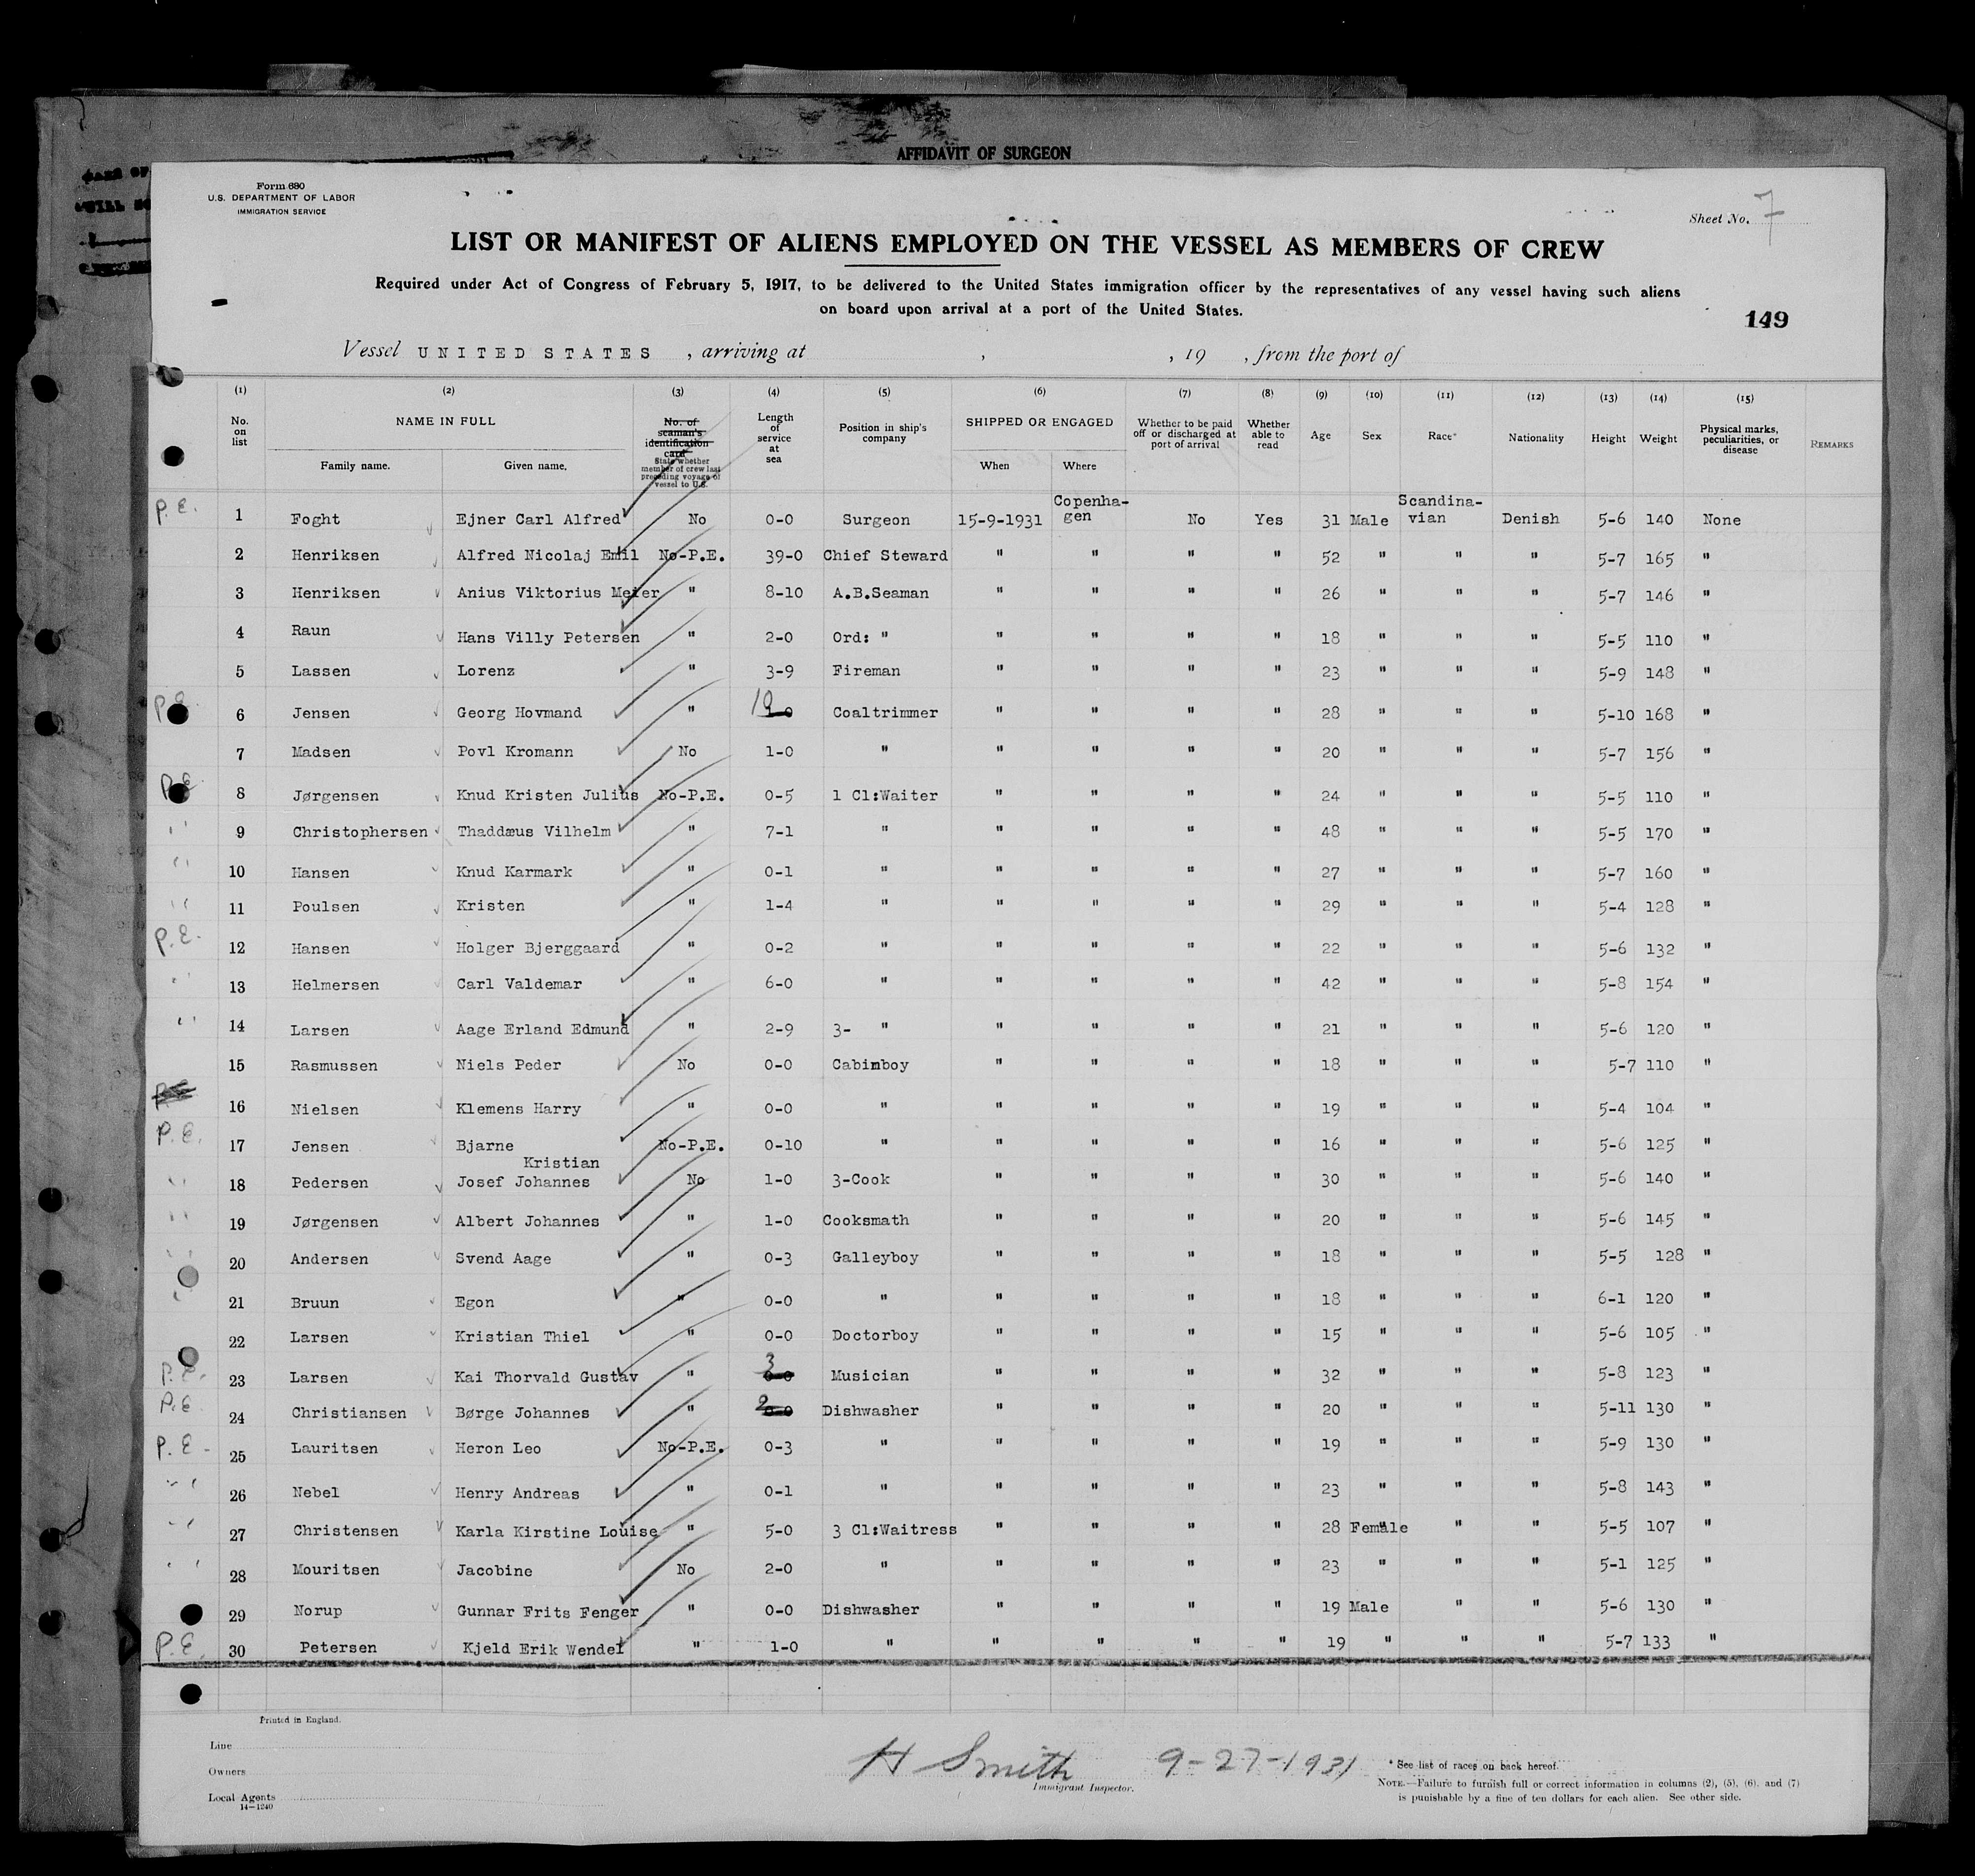 AFFIDAVIT OF SURGEON
Form 680
U.S. DEPARTMENT OF LABOR
IMMIGRATION SERVICE
Sheet No. 7
LIST OR MANIFEST OF ALIENS EMPLOYED ON THE VESSEL AS MEMBERS OF CREW
Required under Act of Congress of February 5, 1917, to be delivered to the United States immigration officer by the representatives of any vessel having such aliens
on board upon arrival at a port of the United States.
149
Vessel UNITED STATES , arriving at , , 19 , from the port of
(1) (2) (3) (4) (5) (6) (7) (8) (9) (10) (11) (12) (13) (14) (15)
No. on list NAME IN FULL Family name. Given name. No. of seaman's identification card State whether member of crew last preceding voyage of vessel to U.S. Length of service at sea Position in ship's company SHIPPED OR ENGAGED When Where Whether to be paid off or discharged at port of arrival Whether able to read Age Sex Race* Nationality Height Weight Physical marks, peculiarities, or disease REMARKS
P.E. 1 Foght Ejner Carl Alfred No 0-0 Surgeon 15-9-1931 Copenha-gen No Yes 31 Male Scandina-vian Denish 5-6 140 None
2 Henriksen Alfred Nicolaj Emil No-P.E. 39-0 Chief Steward " " " " 52 " " " 5-7 165 "
3 Henriksen Anius Viktorius Meier " 8-10 A.B.Seaman " " " " 26 " " " 5-7 146 "
4 Raun Hans Villy Petersen " 2-0 Ord: " " " " " 18 " " " 5-5 110 "
5 Lassen Lorenz " 3-9 Fireman " " " " 23 " " " 5-9 148 "
P.E. 6 Jensen Georg Hovmand " Coaltrimmer " " " " 28 " " " 5-10 168 "
7 Madsen Povl Kromann No 1-0 " " " " " 20 " " " 5-7 156 "
P.E. 8 Jørgensen Knud Kristen Julius No-P.E. 0-5 1 Cl:Waiter " " " " 24 " " " 5-5 110 "
" 9 Christophersen Thaddæus Vilhelm " 7-1 " " " " " 48 " " " 5-5 170 "
" 10 Hansen Knud Karmark " 0-1 " " " " " 27 " " " 5-7 160 "
" 11 Poulsen Kristen " 1-4 " " " " " 29 " " " 5-4 128 "
P.E. 12 Hansen Holger Bjerggaard " 0-2 " " " " " 22 " " " 5-6 132 "
" 13 Helmersen Carl Valdemar " 6-0 " " " " " 42 " " " 5-8 154 "
" 14 Larsen Aage Erland Edmund " 2-9 3- " " " " " 21 " " " 5-6 120 "
15 Rasmussen Niels Peder No 0-0 Cabinboy " " " " 18 " " " 5-7 110 "
16 Nielsen Klemens Harry " 0-0 " " " " " 19 " " " 5-4 104 "
P.E. 17 Jensen Bjarne No-P.E. 0-10 " " " " " 16 " " " 5-6 125 "
Kristian
" 18 Pedersen Josef Johannes No 1-0 3-Cook " " " " 30 " " " 5-6 140 "
" 19 Jørgensen Albert Johannes " 1-0 Cooksmath " " " " 20 " " " 5-6 145 "
" 20 Andersen Svend Aage " 0-3 Galleyboy " " " " 18 " " " 5-5 128 "
21 Bruun Egon " 0-0 " " " " " 18 " " " 6-1 120 "
22 Larsen Kristian Thiel " 0-0 Doctorboy " " " " 15 " " " 5-6 105 "
P.E. 23 Larsen Kai Thorvald Gustav " 3 0-0 Musician " " " " 32 " " " 5-8 123 "
P.E. 24 Christiansen Børge Johannes " 2 0-0 Dishwasher " " " " 20 " " " 5-11 130 "
P.E. 25 Lauritsen Heron Leo No-P.E. 0-3 " " " " " 19 " " " 5-9 130 "
" 26 Nebel Henry Andreas " 0-1 " " " " " 23 " " " 5-8 143 "
" 27 Christensen Karla Kirstine Louise " 5-0 3 Cl:Waitress " " " " 28 Female " " 5-5 107 "
" 28 Mouritsen Jacobine No 2-0 " " " " " 23 " " " 5-1 125 "
29 Norup Gunnar Frits Fenger " 0-0 Dishwasher " " " " 19 Male " " 5-6 130 "
P.E. 30 Petersen Kjeld Erik Wendel " 1-0 " " " " " 19 " " " 5-7 133 "
Printed in England.
Line
Owners
Local Agents
14-1240
H Smith 9-27-1931
Immigrant Inspector.
* See list of races on back hereof.
NOTE.—Failure to furnish full or correct information in columns (2), (5), (6), and (7)
is punishable by a fine of ten dollars for each alien. See other side.